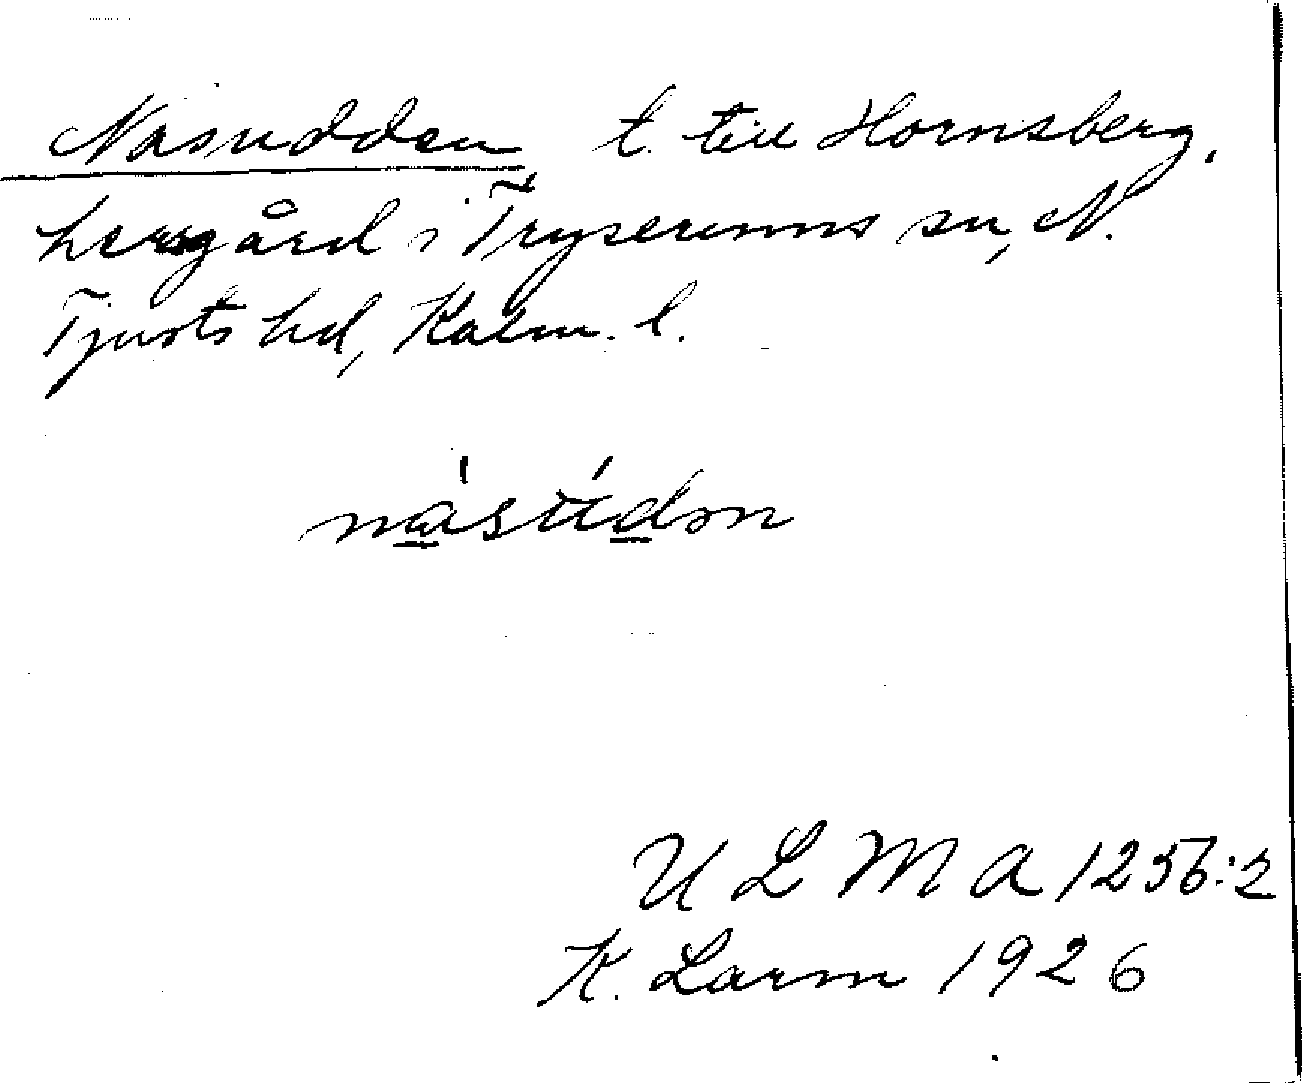 Näsudden t. till Hornsberg,
herrgård i Tryserums sn, N.
Tjusts hd, Kalm. l.
näsúdən
U L M A 1256:2
K. Larm 1926